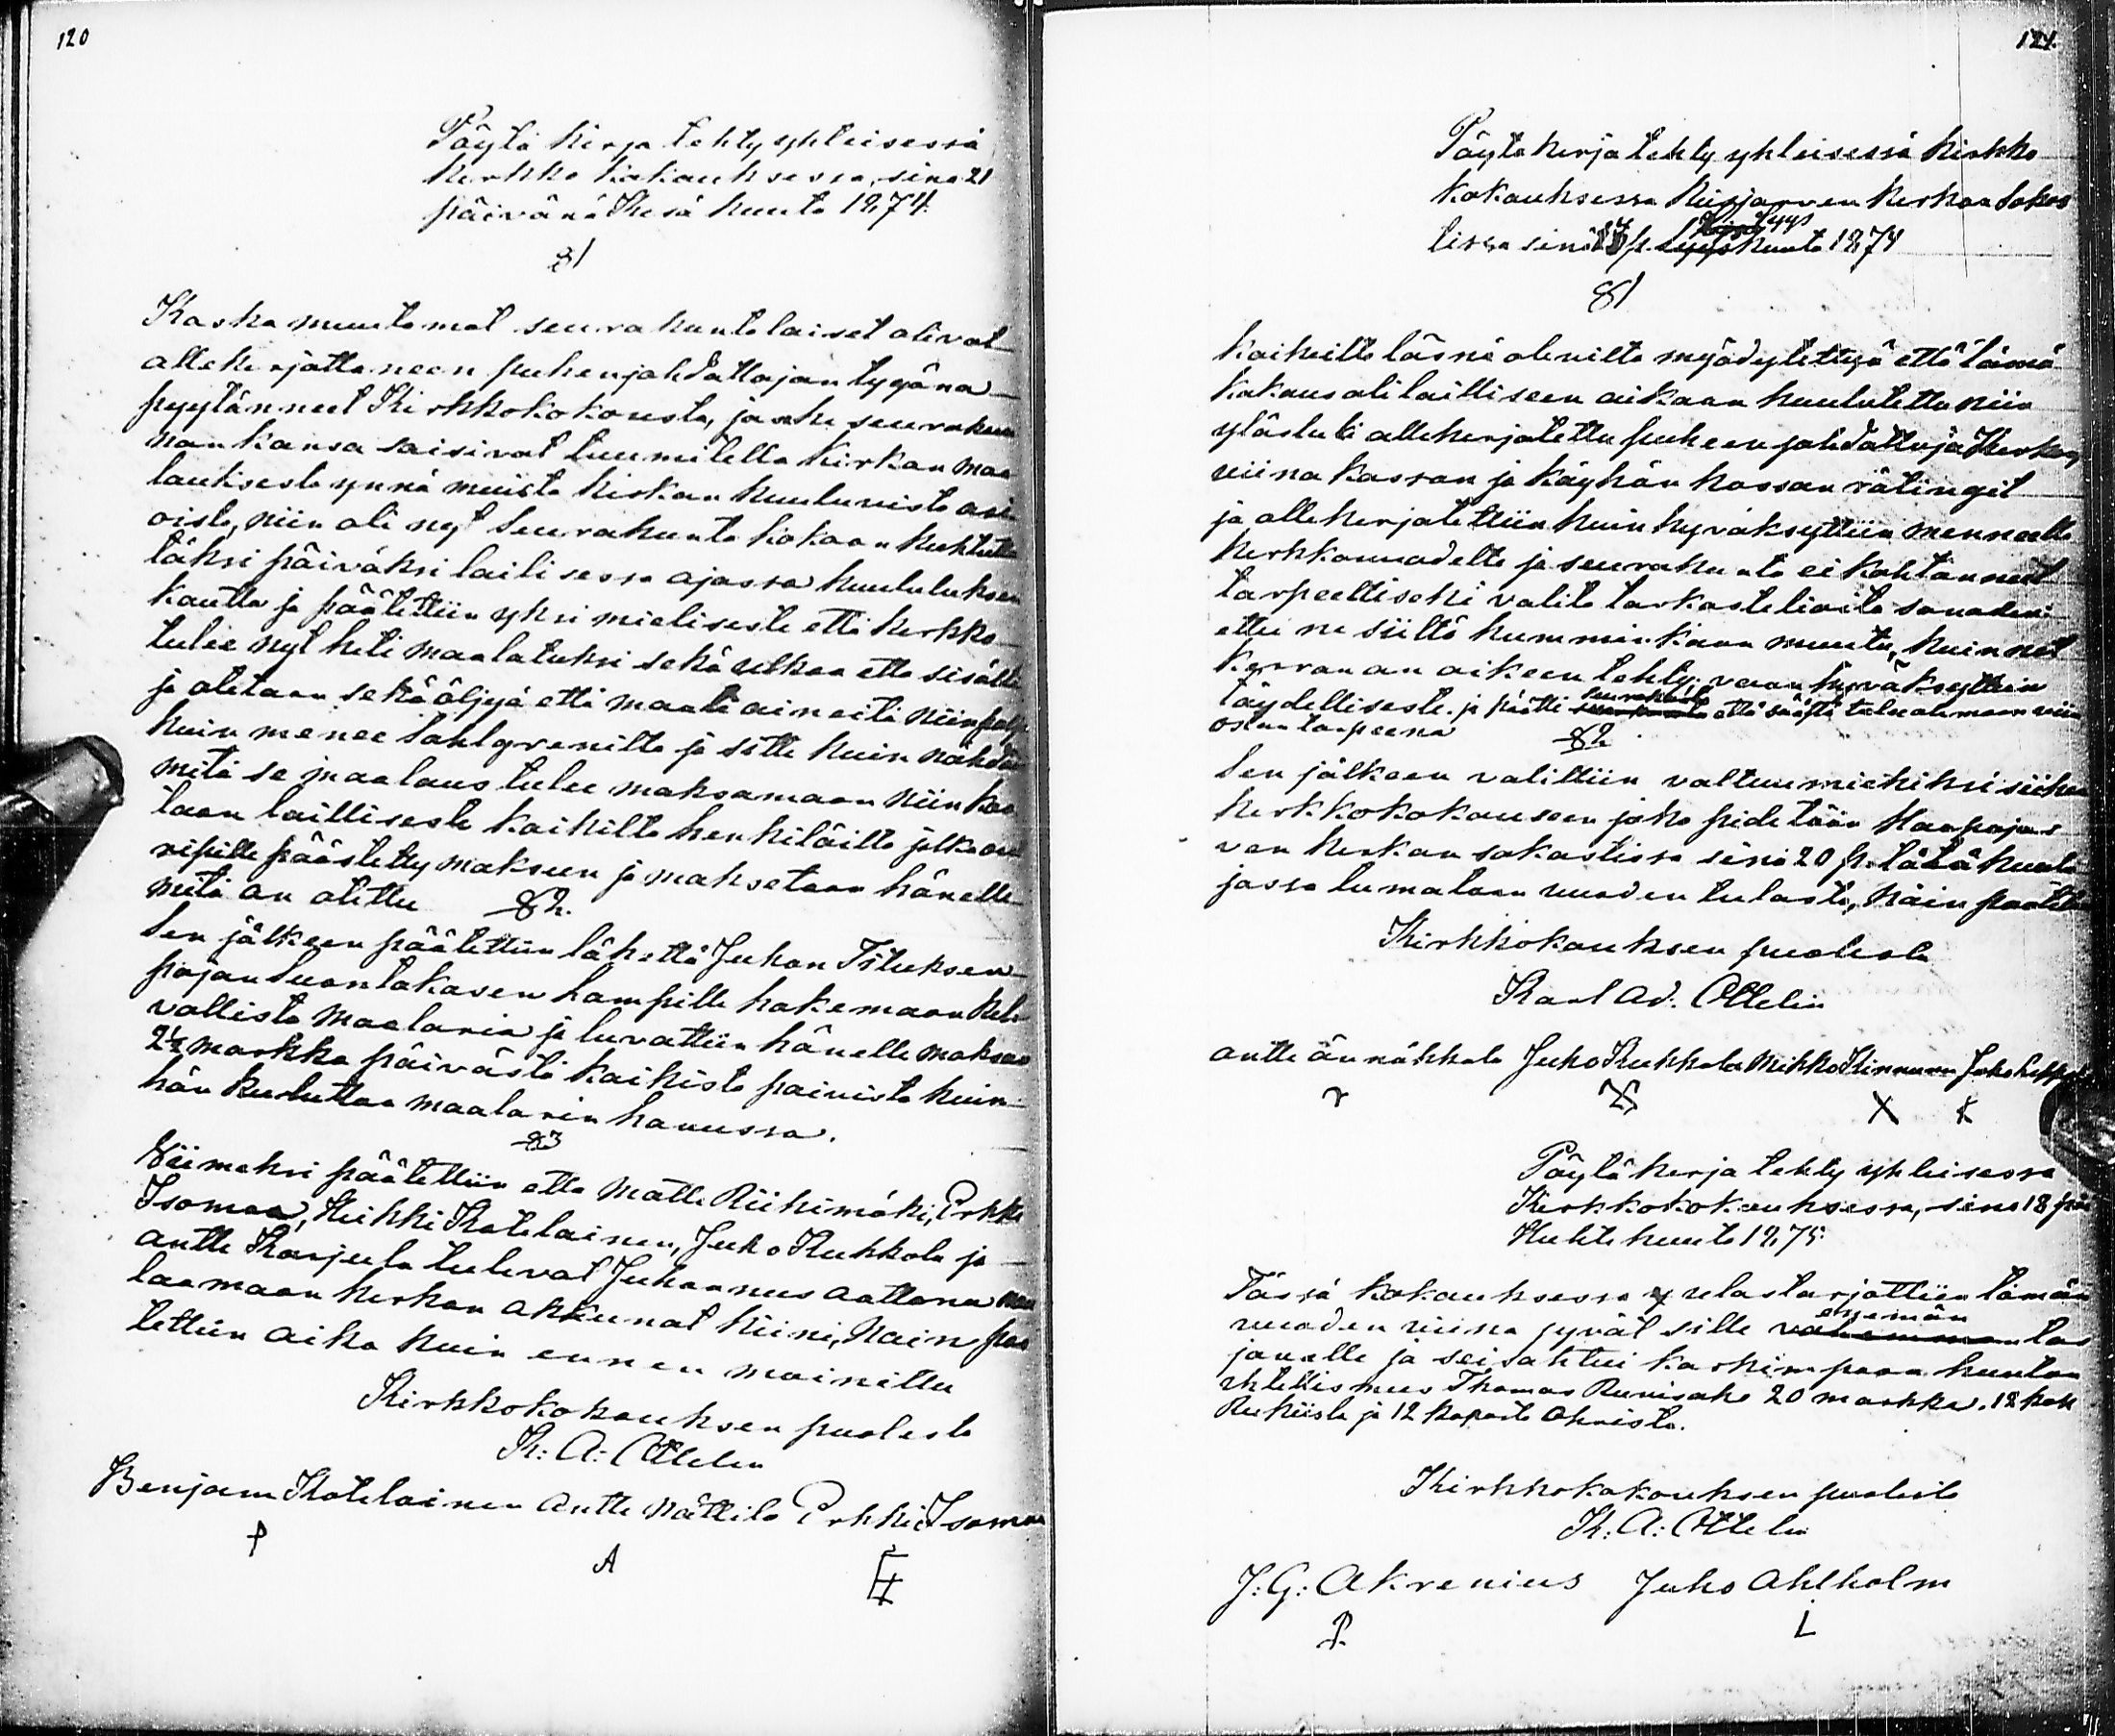 120
Pöytä kirja tehty yhteisessä
kirkko kokouksessa, sinä 21
päivänä Kesä kuuta 1874.
§1
Koska muutamat seurakuntalaiset olivat
allekirjottaneen puheenjohdattajan tygöna
pyytänneet Kirkkokokousta, jaske seurakun
nan kansa saisivat tuumitella kirkon maa
lauksesta ynnä muista kirkon kuuluvista asi
oista, niin oli nyt Seurakunta kokoon kuhtuttu
täksi päiväksi lailisessa ajassa kuulutuksen
kautta ja päätettiin yksi mielisesti että kirkko
tulee nyt heti maalatuksi sekä ulkoa että sisältä
ja otetaan sekä öljyä että maali aineita niinpalj
kuin menee Sahlgrenilta ja sitte kuin nähdän
mitä se maalaus tulee maksamaan niin koo
taan laillisesti kaikilta henkilöiltä jotka on
ripille päästetty maksun ja maksetaan hänelle
mitä on otettu §2.
Sen jälkeen päätettiin lähettä Juhan Tituksen
pojan Suontakasen Sampille hakemaan kel
vollista maalaria ja luvattiin hänelle maksaa
2½ markka päivästä kaikista päivistä kuin
hän kuluttaa maalarin haussa.
§3
Viimeksi päätettiin että Matti Riihimäki, Erkki
Isomaa, Heikki Kotelainen, Juho Kukkola ja
antti Karjula tulevat Juhannus aattona
laamaan kirkon akkunat kiini, Näin pää
tettiin aika kuin ennen mainittu
Kirkkokokouksen puolesta
K: A: Ottelin
Benjam Kotelainen Antti Nättilä Erkki Isomaa
A
121.
Pöytäkirja tehty yhteisessä kirkko
kokouksessa Kirjarven kirkon Sakas
tissa sinä 13 p. syyskuuta 1874
§1
Kaikilta läsnä olevilta myödytettyä että tämä
kokous oli lailliseen aikaan kuulutettu niin
ylösluki allekirjotettu puheen johdattaja Kirkon,
viina kassan ja köyhän kassan rätingit
ja allekirjotettiin kuin hyväksyttiin menneelle
kirkkovuodelta ja seurakunta ei kahtonneet
tarpeelliseksi valita tarkastelioita sanoden:
ettei ne siiltä kummin kaan muutu, kuin net
kerran on oikeen tehty; vaan hyväksyttiin
täydellisesti. ja päätti seurakunta että säästö tulee olemaan viin
oston tarpeena §2.
Sen jälkeen valittiin valtuumiehiksi siihen
kirkkokokouseen joka pidetään Haapajär
ven kirkon sakastissa sinä 20 p. tätä kuuta
jossa lumotaan vuoden tulosta, Näin päätetty
Kirkkokouksen puolesta
Karl Ad. Ottelin
antti ännäkkälä Juho Kukkola Mikko Kinnunen Juho Leppä
Pöytäkirja tehty yhteisessä
Kirkkokokouksessa, sinä 18 päi
Huhtikuuta 1875.
Tässä kokouksessa ulostarjottiin tämän
vuoden viina jyvät sille enemän tar
javalle ja seisahtui korkimpaan huutoon
itellismies Thomas Runisaho 20 markka. 12 kop
Rukiista ja 12 kopasta Ohrista.
Kirkkokokouksen puolesta
K: A: Ottelin
J: G: Akrenius Juho Ahlholm